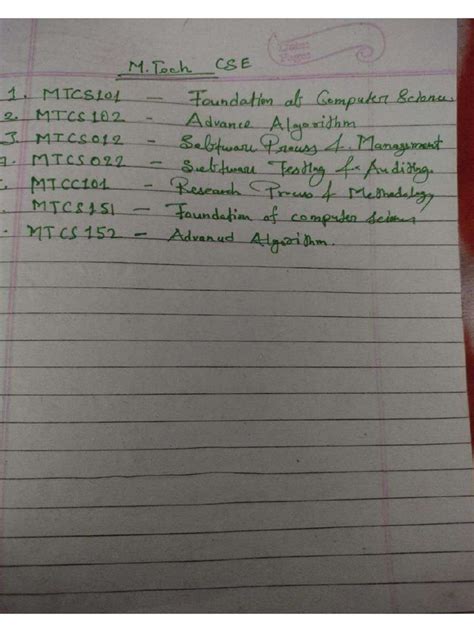 Date:
Page:
M.Tech CSE
1. MTCS101 - Foundation of Computer Science.
2. MTCS102 - Advance Algorithm
3. MTCS012 - Software Process & Management
MTCS022 - Software Testing & Auditing.
MTCC101 - Research Process & Methodology
MTCS151 - Foundation of computer science
MTCS152 - Advanced Algorithm.